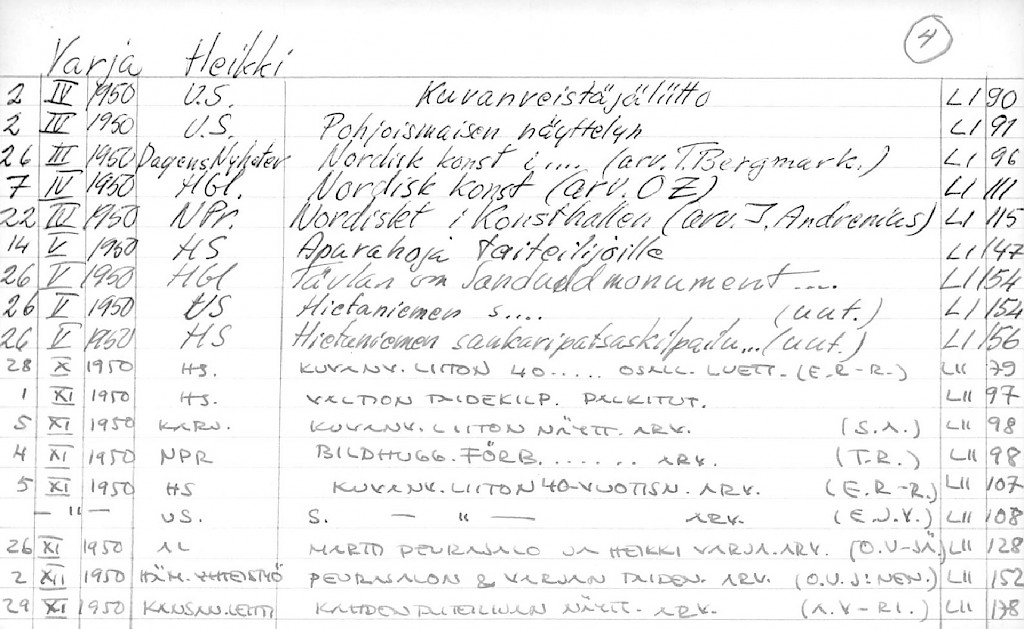 4
Varja Heikki
2 IV 1950 U.S. Kuvanveistäjäliitto LI 90
2 IV 1950 U.S. Pohjoismaisen näyttelyn LI 91
26 III 1950 Dagens Nyheter Nordisk konst i .... (arv. T. Bergmark.) LI 96
7 IV 1950 HBl. Nordisk konst (arv. O Z) LI 111
22 III 1950 NPr. Nordiskt i Konsthallen (arv. J. Andrenius) LI 115
14 V 1950 HS Apurahoja taiteilijoille LI 147
26 V 1950 HBl Tävlan om Sanduddmonument .... LI 154
26 V 1950 US Hietaniemen s.... (uut.) LI 154
26 V 1950 HS Hietaniemen sankaripatsaskilpailu... (uut.) LI 156
28 X 1950 HS. KUVANV. LIITON 40..... OSALL. LUETT. (E.R-R.) LII 79
1 XI 1950 HS. VALTION TAIDEKILP. PALKITUT. LII 97
5 XI 1950 KARJ. KUVANV. LIITON NÄYTT. ARV. (S.A.) LII 98
4 XI 1950 NPR BILDHUGG. FÖRB. ...... ARV. (T.R.) LII 98
5 XI 1950 HS KUVANV. LIITON 40-VUOTISN. ARV. (E.R-R.) LII 107
— " — US. S. — " — ARV. (E.J.V.) LII 108
26 XI 1950 AL MARTTI PEURASALO JA HEIKKI VARJA. ARV. (O.V-JÄ) LII 128
2 XII 1950 HÄM. YHTEISTYÖ PEURASALON & VARJAN TAIDEN. ARV. (O.V.J:NEN.) LII 152
29 XI 1950 KANSAN LEHTI KAHDEN TAITEILIJAN NÄYTT. ARV. (A.V-RI.) LII 178